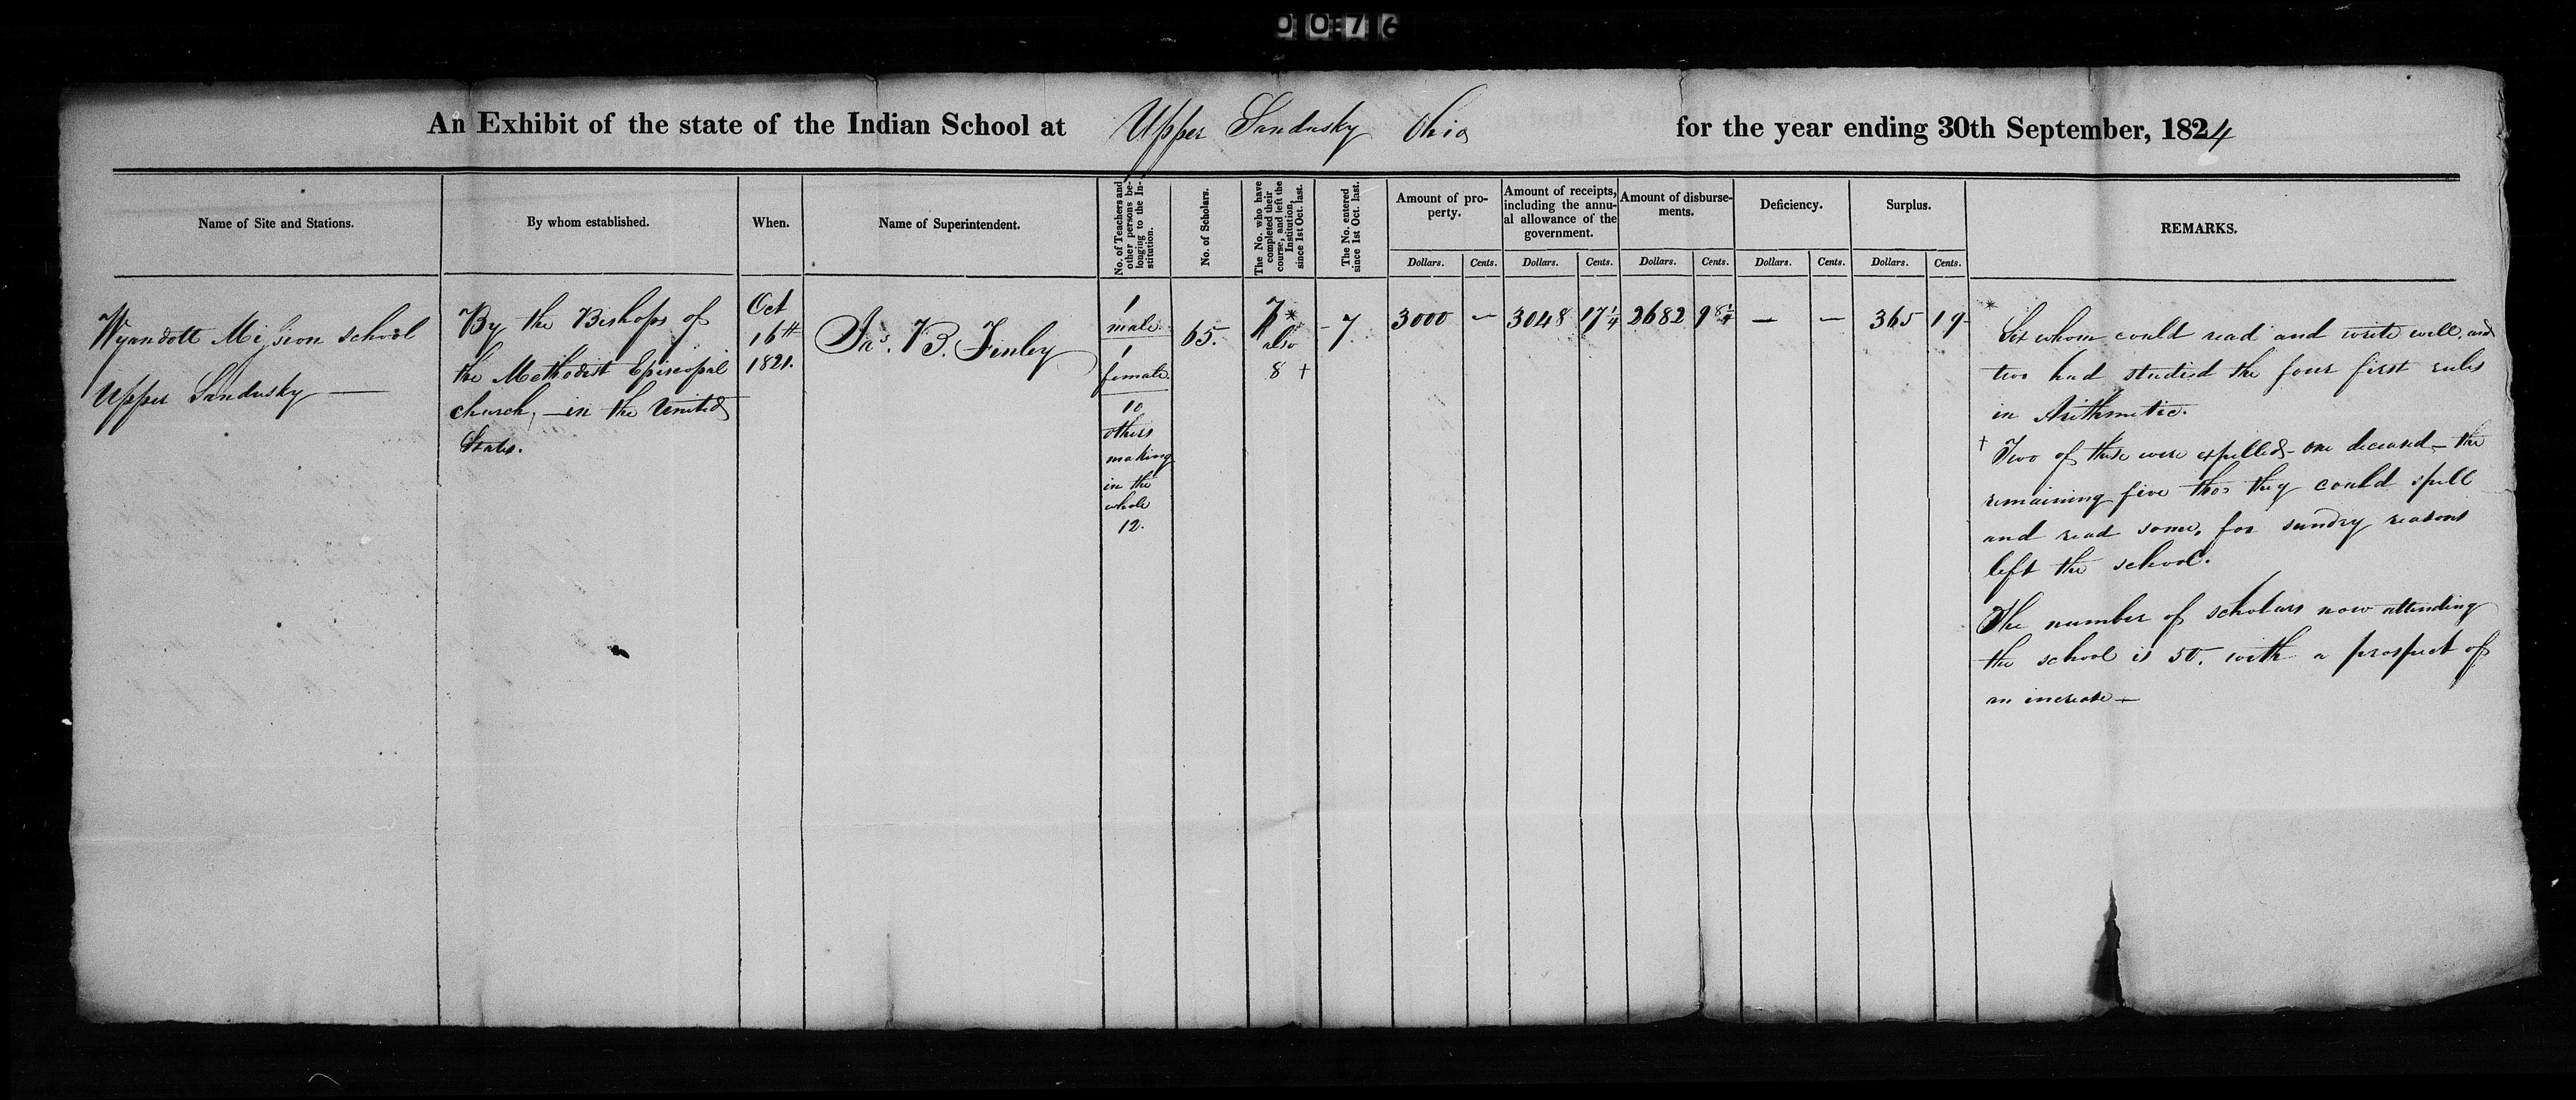 00:76
An Exhibit of the state of the Indian School at Upper Sandusky Ohio for the year ending 30th September, 1824
Name of Site and Stations.
By whom established.
When.
Name of Superintendent.
No. of Teachers and
other persons be-
longing to the In-
stitution.
No. of Scholars.
The No. who have
completed their
course, and left the
Institution,
since 1st Oct. last.
The No. entered
since 1st Oct. last.
Amount of pro-
perty.
Amount of receipts,
including the annu-
al allowance of the
government.
Amount of disburse-
ments.
Deficiency.
Surplus.
REMARKS.
Dollars. Cents. Dollars. Cents. Dollars. Cents. Dollars. Cents. Dollars. Cents.
Wyandott Mission school
Upper Sandusky —
By the Bishops of
the Methodist Episcopal
church, — in the United
States.
Oct
16th
1821.
Jas. B. Finley
1
male
1
female.
10
others
making
in the
whole
12.
65.
7*
also
8 +
7
3000 —
3048 17 1/4
2682 98 1/4
— —
365 19
* Six whom could read and write well, and
two had studied the four first rules
in Arithmetic.
+ Two of these were expelled – one deceased – the
remaining five tho' they could spell
and read some, for sundry reasons
left the school.
The number of scholars now attending
the school is 50. with a prospect of
an increase —